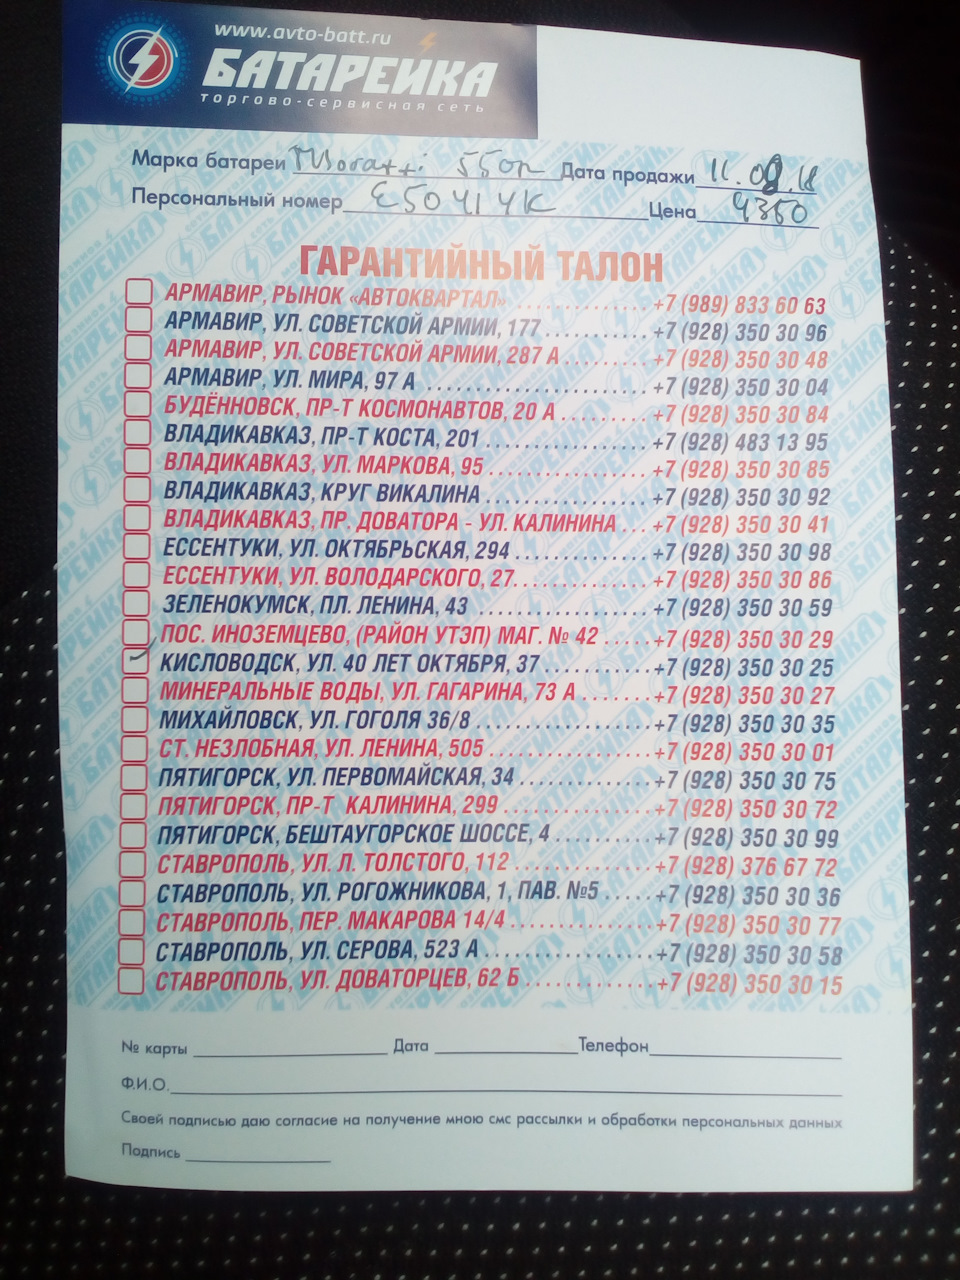 www.avto-batt.ru
БАТАРЕЙКА
торгово-сервисная сеть
Марка батареи Moratti 55оп Дата продажи 11.08.18
Персональный номер E50414K Цена 4350
ГАРАНТИЙНЫЙ ТАЛОН
АРМАВИР, РЫНОК «АВТОКВАРТАЛ» +7 (989) 833 60 63
АРМАВИР, УЛ. СОВЕТСКОЙ АРМИИ, 177 +7 (928) 350 30 96
АРМАВИР, УЛ. СОВЕТСКОЙ АРМИИ, 287 А +7 (928) 350 30 48
АРМАВИР, УЛ. МИРА, 97 А +7 (928) 350 30 04
БУДЁННОВСК, ПР-Т КОСМОНАВТОВ, 20 А +7 (928) 350 30 84
ВЛАДИКАВКАЗ, ПР-Т КОСТА, 201 +7 (928) 483 13 95
ВЛАДИКАВКАЗ, УЛ. МАРКОВА, 95 +7 (928) 350 30 85
ВЛАДИКАВКАЗ, КРУГ ВИКАЛИНА +7 (928) 350 30 92
ВЛАДИКАВКАЗ, ПР. ДОВАТОРА - УЛ. КАЛИНИНА +7 (928) 350 30 41
ЕССЕНТУКИ, УЛ. ОКТЯБРЬСКАЯ, 294 +7 (928) 350 30 98
ЕССЕНТУКИ, УЛ. ВОЛОДАРСКОГО, 27 +7 (928) 350 30 86
ЗЕЛЕНОКУМСК, ПЛ. ЛЕНИНА, 43 +7 (928) 350 30 59
ПОС. ИНОЗЕМЦЕВО, (РАЙОН УТЭП) МАГ. № 42 +7 (928) 350 30 29
КИСЛОВОДСК, УЛ. 40 ЛЕТ ОКТЯБРЯ, 37 +7 (928) 350 30 25
МИНЕРАЛЬНЫЕ ВОДЫ, УЛ. ГАГАРИНА, 73 А +7 (928) 350 30 27
МИХАЙЛОВСК, УЛ. ГОГОЛЯ 36/8 +7 (928) 350 30 35
СТ. НЕЗЛОБНАЯ, УЛ. ЛЕНИНА, 505 +7 (928) 350 30 01
ПЯТИГОРСК, УЛ. ПЕРВОМАЙСКАЯ, 34 +7 (928) 350 30 75
ПЯТИГОРСК, ПР-Т КАЛИНИНА, 299 +7 (928) 350 30 72
ПЯТИГОРСК, БЕШТАУГОРСКОЕ ШОССЕ, 4 +7 (928) 350 30 99
СТАВРОПОЛЬ, УЛ. Л. ТОЛСТОГО, 112 +7 (928) 376 67 72
СТАВРОПОЛЬ, УЛ. РОГОЖНИКОВА, 1, ПАВ. №5 +7 (928) 350 30 36
СТАВРОПОЛЬ, ПЕР. МАКАРОВА 14/4 +7 (928) 350 30 77
СТАВРОПОЛЬ, УЛ. СЕРОВА, 523 А +7 (928) 350 30 58
СТАВРОПОЛЬ, УЛ. ДОВАТОРЦЕВ, 62 Б +7 (928) 350 30 15
№ карты Дата Телефон
Ф.И.О.
Своей подписью даю согласие на получение мною смс рассылки и обработки персональных данных
Подпись